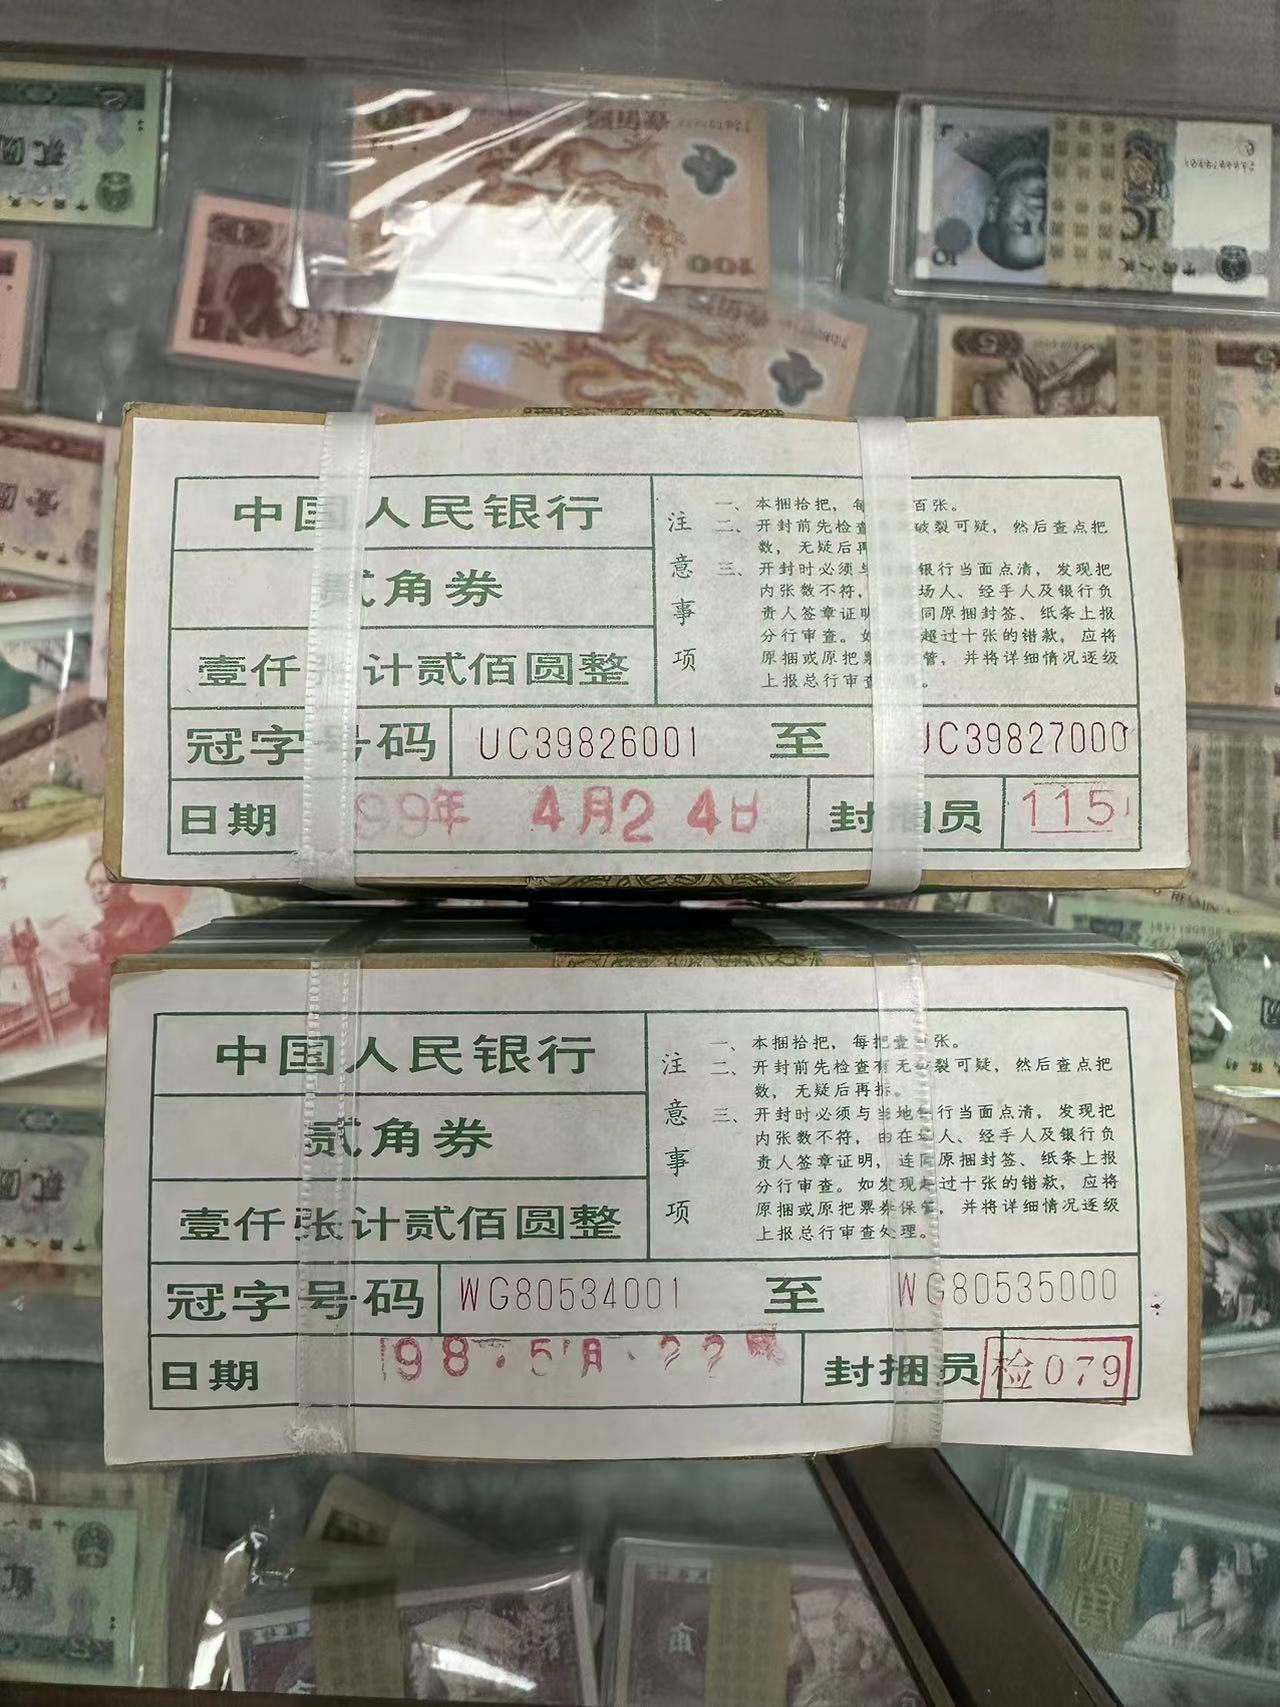 中国人民银行
贰角券
壹仟张计贰佰圆整
注意事项
一、本捆拾把，每百张。
二、开封前先检查破裂可疑，然后查点把
数，无疑后再
三、开封时必须与银行当面点清，发现把
内张数不符，场人、经手人及银行负
责人签章证明同原捆封签、纸条上报
分行审查。如超过十张的错款，应将
原捆或原把票管，并将详细情况逐级
上报总行审查。
冠字号码 UC39826001 至 UC39827000
日期 99年 4月24日 封捆员 115
中国人民银行
贰角券
壹仟张计贰佰圆整
注意事项
一、本捆拾把，每把壹百张。
二、开封前先检查有无破裂可疑，然后查点把
数，无疑后再拆。
三、开封时必须与当地银行当面点清，发现把
内张数不符，由在场人、经手人及银行负
责人签章证明，连同原捆封签、纸条上报
分行审查。如发现超过十张的错款，应将
原捆或原把票券保管，并将详细情况逐级
上报总行审查处理。
冠字号码 WG80534001 至 WG80535000
日期 198.5月.22 封捆员 检079
100
10
贰圆
壹圆
贰角